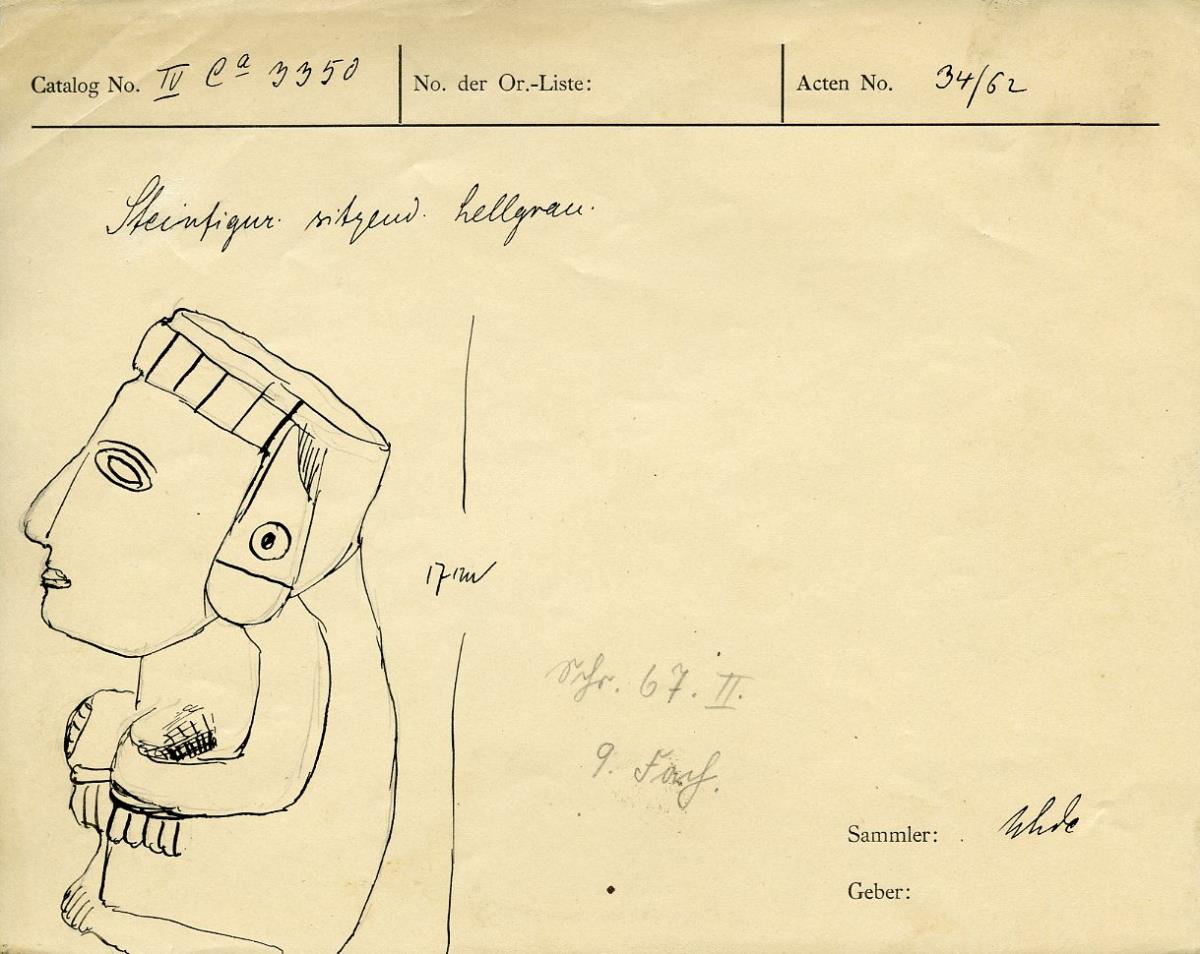 Catalog No. IV Ca 3350 No. der Or.-Liste: Acten No. 34/62
Steinfigur. sitzend. hellgrau.
17 cm
Schr. 67. II.
9. Fach.
Sammler: Uhde
Geber: